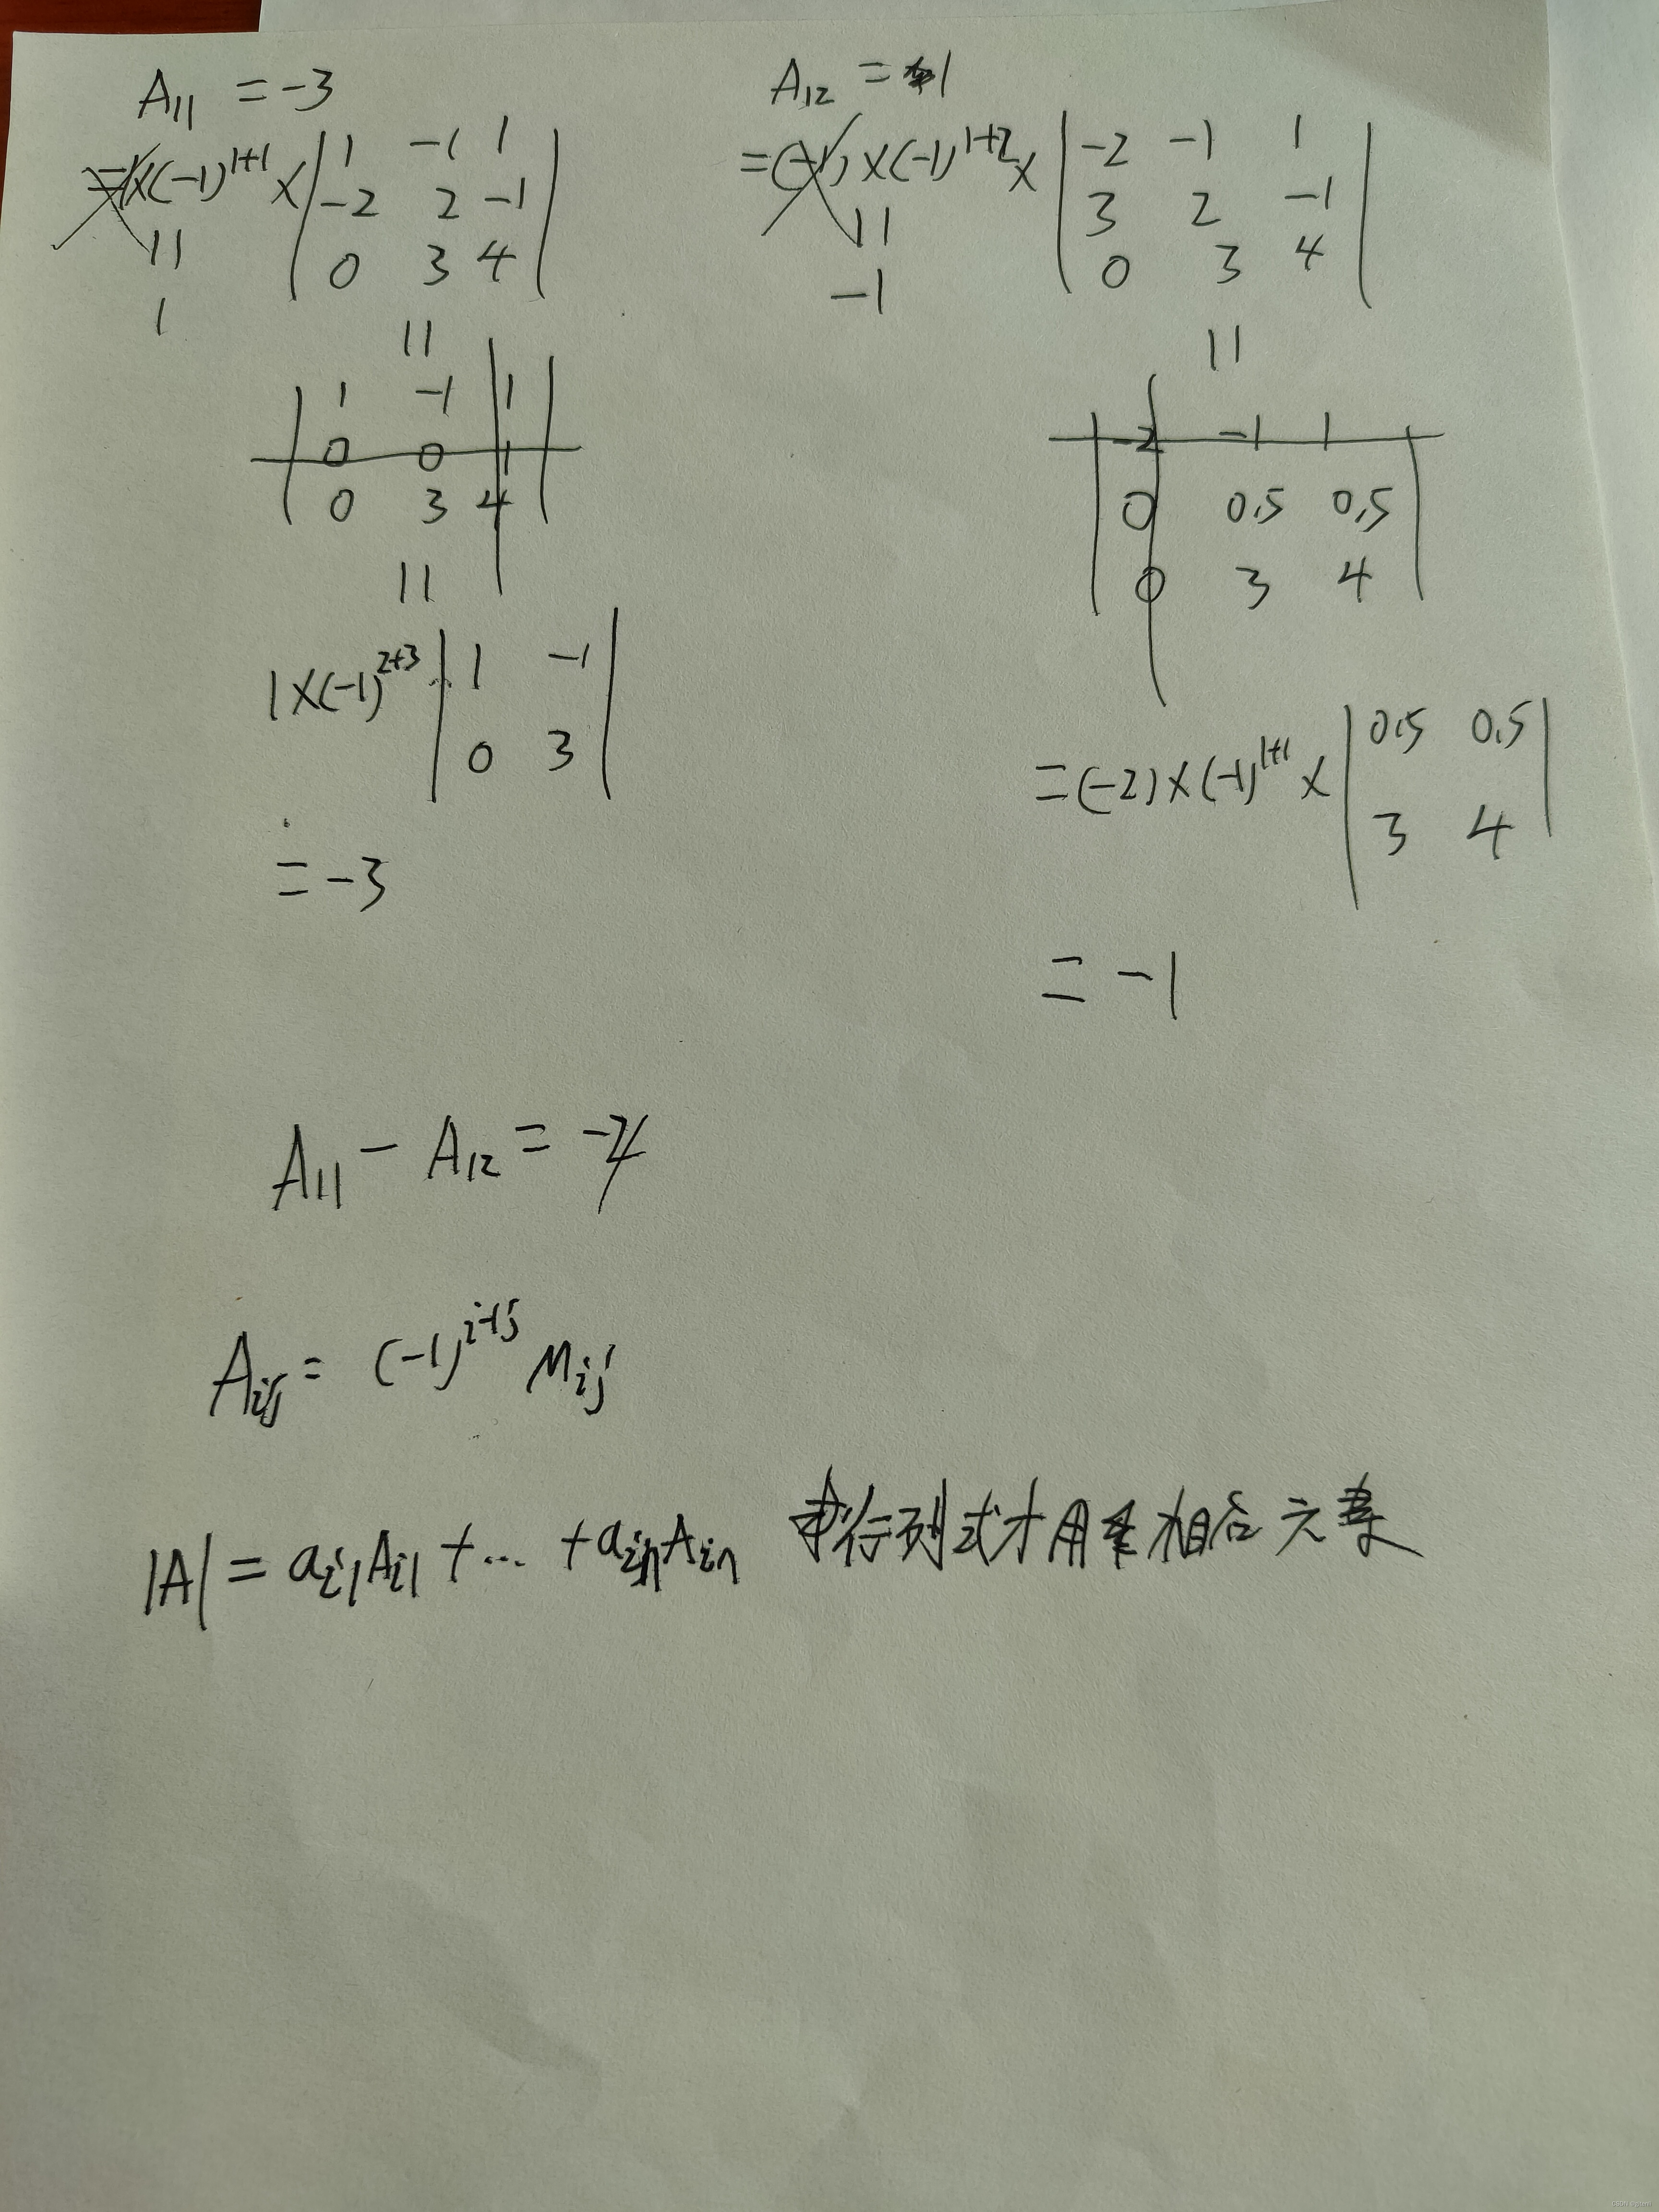 A₁₁ = -3
=1×(-1)¹⁺¹ × | 1 -1 1 |
| -2 2 -1 |
| 0 3 4 |
11
1
11
| 1 -1 1 |
| 0 0 1 |
| 0 3 4 |
11
1×(-1)²⁺³ | 1 -1 |
| 0 3 |
= -3
A₁₂ = 1
=(-1)×(-1)¹⁺²× | -2 -1 1 |
| 3 2 -1 |
| 0 3 4 |
11
-1
11
| -2 -1 1 |
| 0 0.5 0.5 |
| 0 3 4 |
=(-2)×(-1)¹⁺¹× | 0.5 0.5 |
| 3 4 |
= -1
A₁₁ - A₁₂ = -4
Aij = (-1)^i+j Mij
|A| = ai1Ai1 + ... + ainAin 求行列式才用乘相应元素